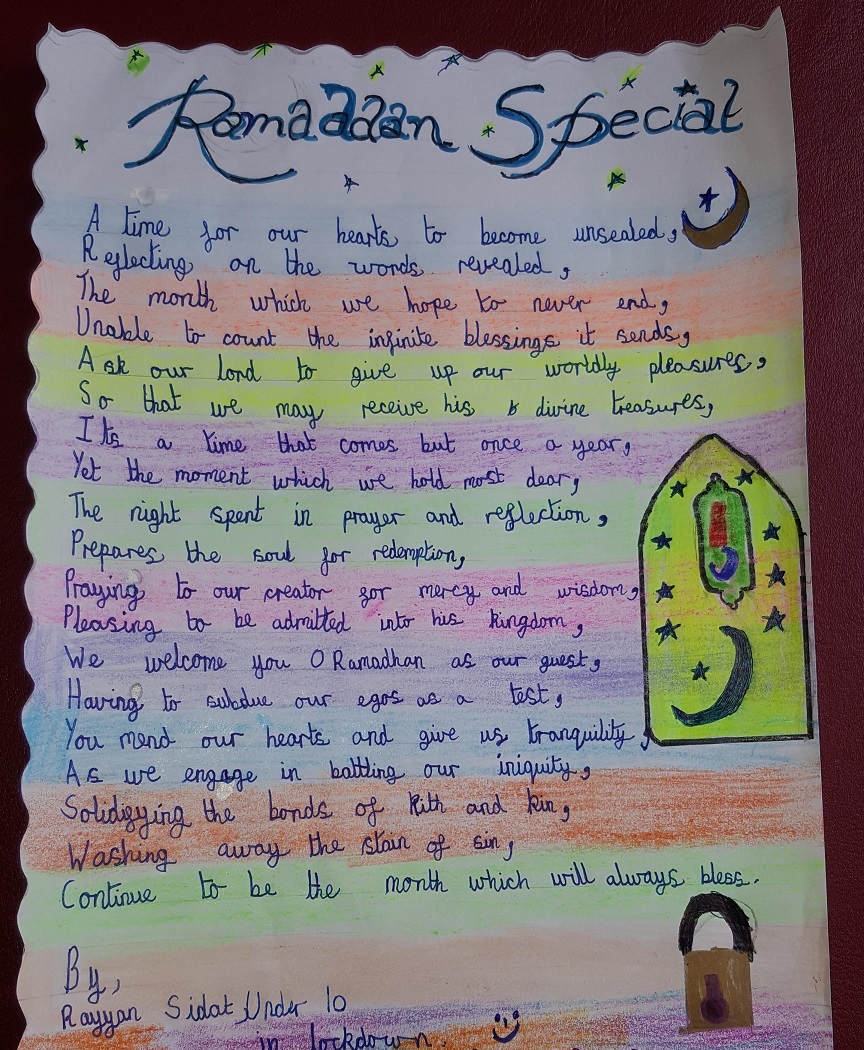 Ramaddan Special
A time for our hearts to become unsealed,
Reflecting on the words revealed,
The month which we hope to never end,
Unable to count the infinite blessings it sends,
Ask our lord to give up our worldly pleasures,
So that we may receive his divine treasures,
Its a time that comes but once a year,
Yet the moment which we hold most dear,
The night spent in prayer and reflection,
Prepares the soul for redemption,
Praying to our creator for mercy and wisdom,
Pleasing to be admitted into his kingdom,
We welcome you O Ramadhan as our guest,
Having to subdue our egos as a test,
You mend our hearts and give us tranquility,
As we engage in battling our iniquity,
Solidifying the bonds of kith and kin,
Washing away the stain of sin,
Continue to be the month which will always bless.
By,
Rayyan Sidat, Under 10
in lockdown.